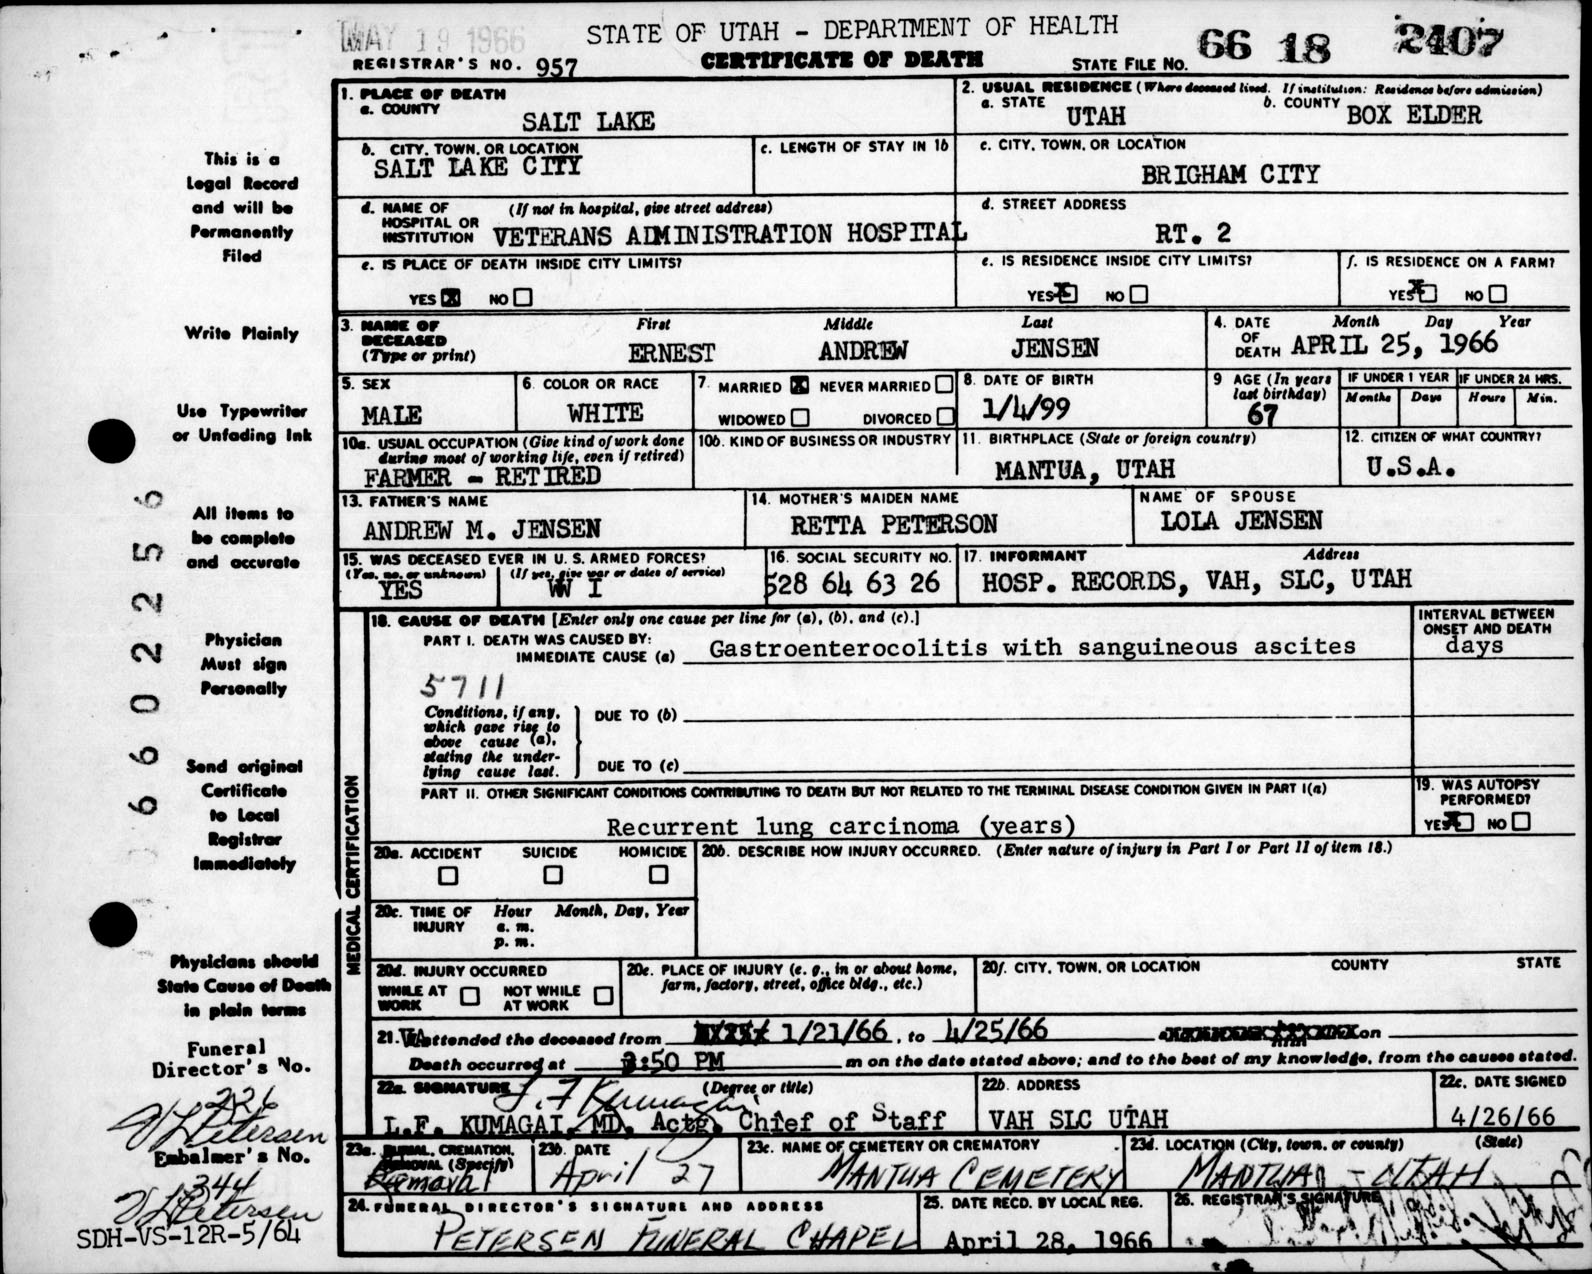 MAY 19 1966
STATE OF UTAH - DEPARTMENT OF HEALTH
REGISTRAR'S NO. 957
CERTIFICATE OF DEATH
STATE FILE NO. 66 18 2407
This is a
Legal Record
and will be
Permanently
Filed
Write Plainly
Use Typewriter
or Unfading Ink
All items to
be complete
and accurate
Physician
Must sign
Personally
Send original
Certificate
to Local
Registrar
Immediately
Physicians should
State Cause of Death
in plain terms
Funeral
Director's No.
226
V L Petersen
Embalmer's No.
344
V L Petersen
SDH-VS-12R-5/64
66022556
1. PLACE OF DEATH
a. COUNTY
SALT LAKE
2. USUAL RESIDENCE (Where deceased lived. If institution: Residence before admission)
a. STATE
UTAH
b. COUNTY
BOX ELDER
b. CITY, TOWN, OR LOCATION
SALT LAKE CITY
c. LENGTH OF STAY IN 1b
c. CITY, TOWN, OR LOCATION
BRIGHAM CITY
d. NAME OF (If not in hospital, give street address)
HOSPITAL OR
INSTITUTION VETERANS ADMINISTRATION HOSPITAL
d. STREET ADDRESS
RT. 2
e. IS PLACE OF DEATH INSIDE CITY LIMITS?
YES X NO
e. IS RESIDENCE INSIDE CITY LIMITS?
YES X NO
f. IS RESIDENCE ON A FARM?
YES X NO
3. NAME OF First Middle Last
DECEASED
(Type or print) ERNEST ANDREW JENSEN
4. DATE Month Day Year
OF
DEATH APRIL 25, 1966
5. SEX
MALE
6. COLOR OR RACE
WHITE
7. MARRIED X NEVER MARRIED
WIDOWED DIVORCED
8. DATE OF BIRTH
1/4/99
9 AGE (In years
last birthday)
67
IF UNDER 1 YEAR IF UNDER 24 HRS.
Months Days Hours Min.
10a. USUAL OCCUPATION (Give kind of work done
during most of working life, even if retired)
FARMER - RETIRED
10b. KIND OF BUSINESS OR INDUSTRY
11. BIRTHPLACE (State or foreign country)
MANTUA, UTAH
12. CITIZEN OF WHAT COUNTRY?
U.S.A.
13. FATHER'S NAME
ANDREW M. JENSEN
14. MOTHER'S MAIDEN NAME
RETTA PETERSON
NAME OF SPOUSE
LOLA JENSEN
15. WAS DECEASED EVER IN U. S. ARMED FORCES?
(Yes, no, or unknown) (If yes, give war or dates of service)
YES WW I
16. SOCIAL SECURITY NO.
528 64 63 26
17. INFORMANT Address
HOSP. RECORDS, VAH, SLC, UTAH
MEDICAL CERTIFICATION
18. CAUSE OF DEATH [Enter only one cause per line for (a), (b), and (c).]
INTERVAL BETWEEN
ONSET AND DEATH
PART I. DEATH WAS CAUSED BY:
IMMEDIATE CAUSE (a) Gastroenterocolitis with sanguineous ascites days
5711
Conditions, if any,
which gave rise to
above cause (a),
stating the under-
lying cause last.
DUE TO (b)
DUE TO (c)
PART II. OTHER SIGNIFICANT CONDITIONS CONTRIBUTING TO DEATH BUT NOT RELATED TO THE TERMINAL DISEASE CONDITION GIVEN IN PART I(a)
Recurrent lung carcinoma (years)
19. WAS AUTOPSY
PERFORMED?
YES X NO
20a. ACCIDENT SUICIDE HOMICIDE
20b. DESCRIBE HOW INJURY OCCURRED. (Enter nature of injury in Part I or Part II of item 18.)
20c. TIME OF Hour Month, Day, Year
INJURY a. m.
p. m.
20d. INJURY OCCURRED
WHILE AT WORK NOT WHILE AT WORK
20e. PLACE OF INJURY (e. g., in or about home,
farm, factory, street, office bldg., etc.)
20f. CITY, TOWN, OR LOCATION COUNTY STATE
21. VA attended the deceased from 1/21/66, to 4/25/66 on
Death occurred at 3:50 PM m on the date stated above; and to the best of my knowledge, from the causes stated.
22a. SIGNATURE (Degree or title)
L. F. Kumagai
L.F. KUMAGAI, MD, Actg. Chief of Staff
22b. ADDRESS
VAH SLC UTAH
22c. DATE SIGNED
4/26/66
23a. BURIAL, CREMATION,
REMOVAL (Specify)
Removal
23b. DATE
April 27
23c. NAME OF CEMETERY OR CREMATORY
MANTUA CEMETERY
23d. LOCATION (City, town, or county) (State)
MANTUA - UTAH
24. FUNERAL DIRECTOR'S SIGNATURE AND ADDRESS
PETERSEN FUNERAL CHAPEL
25. DATE RECD. BY LOCAL REG.
April 28, 1966
26. REGISTRAR'S SIGNATURE